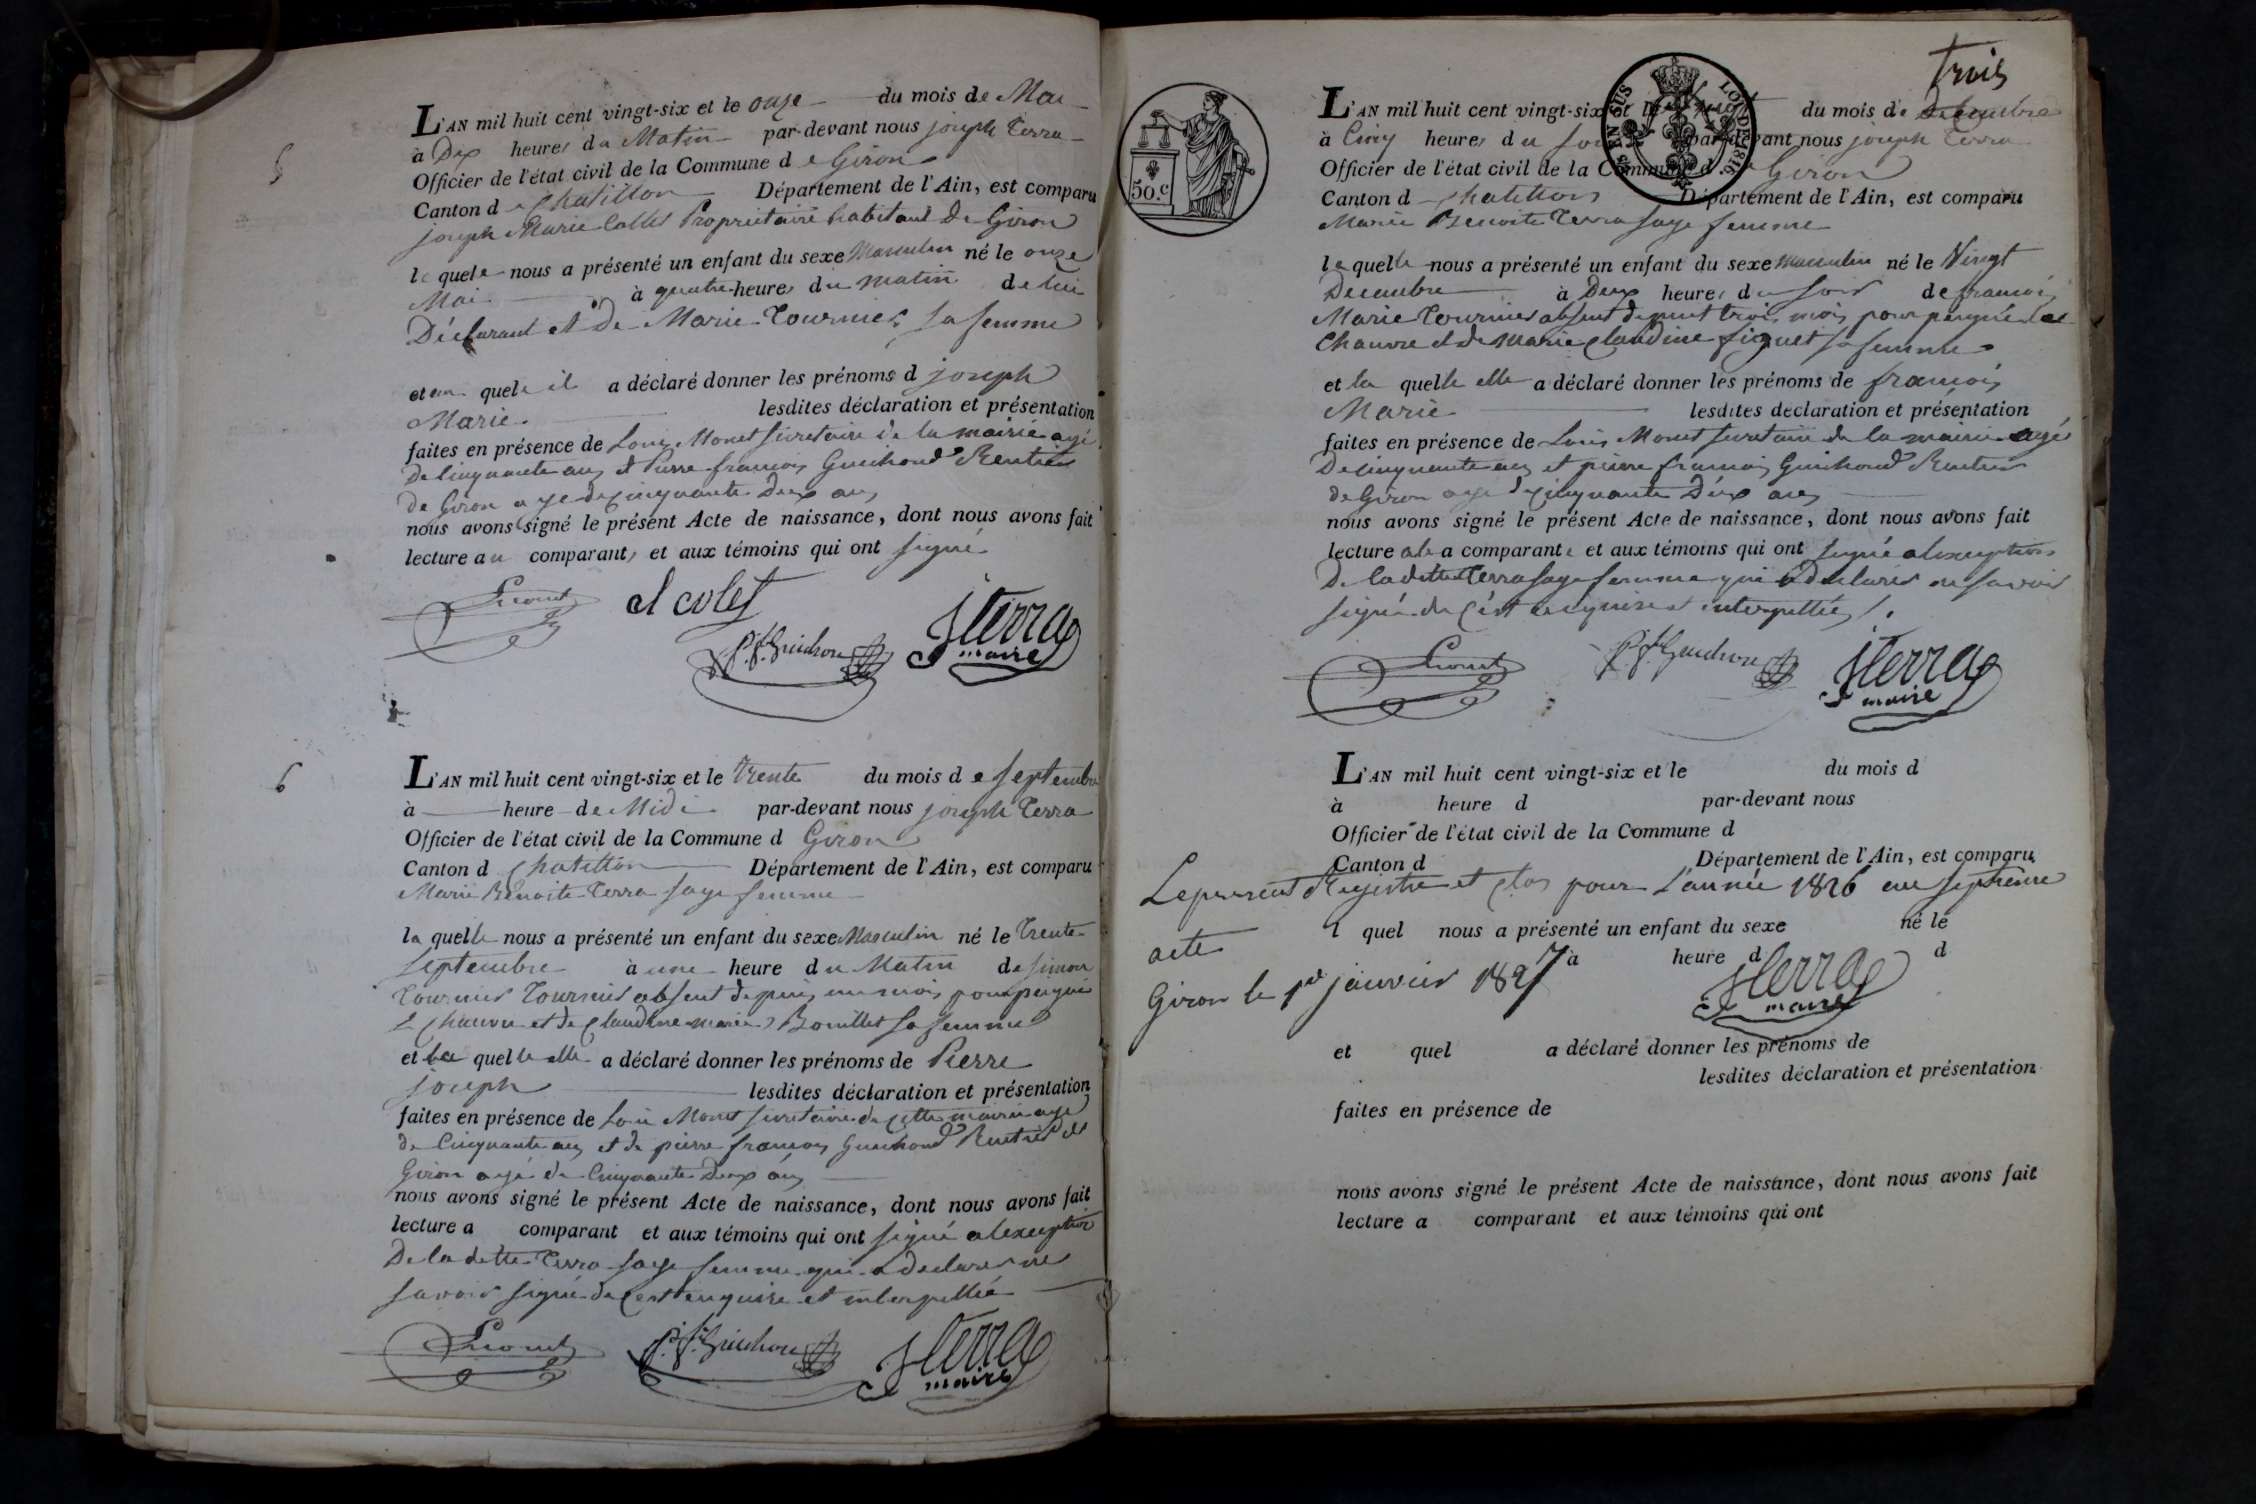 5
L'AN mil huit cent vingt-six et le onze du mois de Mai
à Dix heures du Matin par-devant nous joseph Terra
Officier de l'état civil de la Commune de Giron
Canton de Chatillon Département de l'Ain, est comparu
joseph Marie Collet Propriétaire habitant de Giron
le quel nous a présenté un enfant du sexe Masculin né le onze
Mai à quatre heures du matin de lui
Déclarant et de Marie Tournier sa femme
et au quel il a déclaré donner les prénoms d joseph
Marie lesdites déclaration et présentation
faites en présence de Louis Monet secretaire de la mairie agé
De cinquante ans et Pierre francois Guichond Rentier
de Giron agé de cinquante Deux ans
nous avons signé le présent Acte de naissance, dont nous avons fait
lecture au comparant, et aux témoins qui ont signé
Lmonet
colet
P. f. Guichon
JTerra
maire
6
L'AN mil huit cent vingt-six et le trente du mois de septembre
à heure de Midi par-devant nous joseph Terra
Officier de l'état civil de la Commune d Giron
Canton d Chatillon Département de l'Ain, est comparu
Marie Benoite Terra sage femme
la quelle nous a présenté un enfant du sexe Masculin né le Trente
Septembre à une heure du Matin de simon
Tournier Tournier absent depuis un mois pour peigné
l chanvre et de Claudine marie Bouillet sa femme
et la quelle elle a déclaré donner les prénoms de Pierre
joseph lesdites déclaration et présentation
faites en présence de Louis Monet secretaire de cette mairie agé
de Cinquante ans et de pierre francois Guichond Rentier de
Giron agé de Cinquante Deux ans
nous avons signé le présent Acte de naissance, dont nous avons fait
lecture a comparant et aux témoins qui ont signé a lexception
De la dette Terra sage femme qui a declarer ne
savoir signé de cest enquire et interpellée
Lmonet
P. f. Guichon
JTerra
maire
trois
50.c
EN SUS
LOI DE 1816.
L'AN mil huit cent vingt-six et le du mois de Decembre
à Cinq heures du soir par-devant nous joseph Terra
Officier de l'état civil de la Commune d Giron
Canton d Chatillon Département de l'Ain, est comparu
Marie Benoite Terra sage femme
la quelle nous a présenté un enfant du sexe masculin né le Vingt
Decembre à Deux heures du soir de francois
Marie Tournier absent depuit trois mois pour peigné le
Chanvre et de Marie Claudine figuet sa femme
et la quelle elle a déclaré donner les prénoms de francois
Marie lesdites déclaration et présentation
faites en présence de Louis Monet secretaire de la mairie agé
De cinquante ans et pierre francois Guichond Rentier
de Giron agé de cinquante Deux ans
nous avons signé le présent Acte de naissance, dont nous avons fait
lecture a la comparante et aux témoins qui ont signé a lexception
De ladette Terra sage femme qui a declarer ne savoir
signé de cést enquise et interpellée
Lmonet
P. f. Guichon
JTerra
maire
L'AN mil huit cent vingt-six et le du mois d
à heure d par-devant nous
Officier de l'état civil de la Commune d
Canton d Département de l'Ain, est comparu
Le present Registre et clos pour L'année 1826 au septième
l quel nous a présenté un enfant du sexe né le
acte
à heure d d
Giron le 1er janvier 1827
JTerra
maire
et quel a déclaré donner les prénoms de
lesdites déclaration et présentation
faites en présence de
nous avons signé le présent Acte de naissance, dont nous avons fait
lecture a comparant et aux témoins qui ont